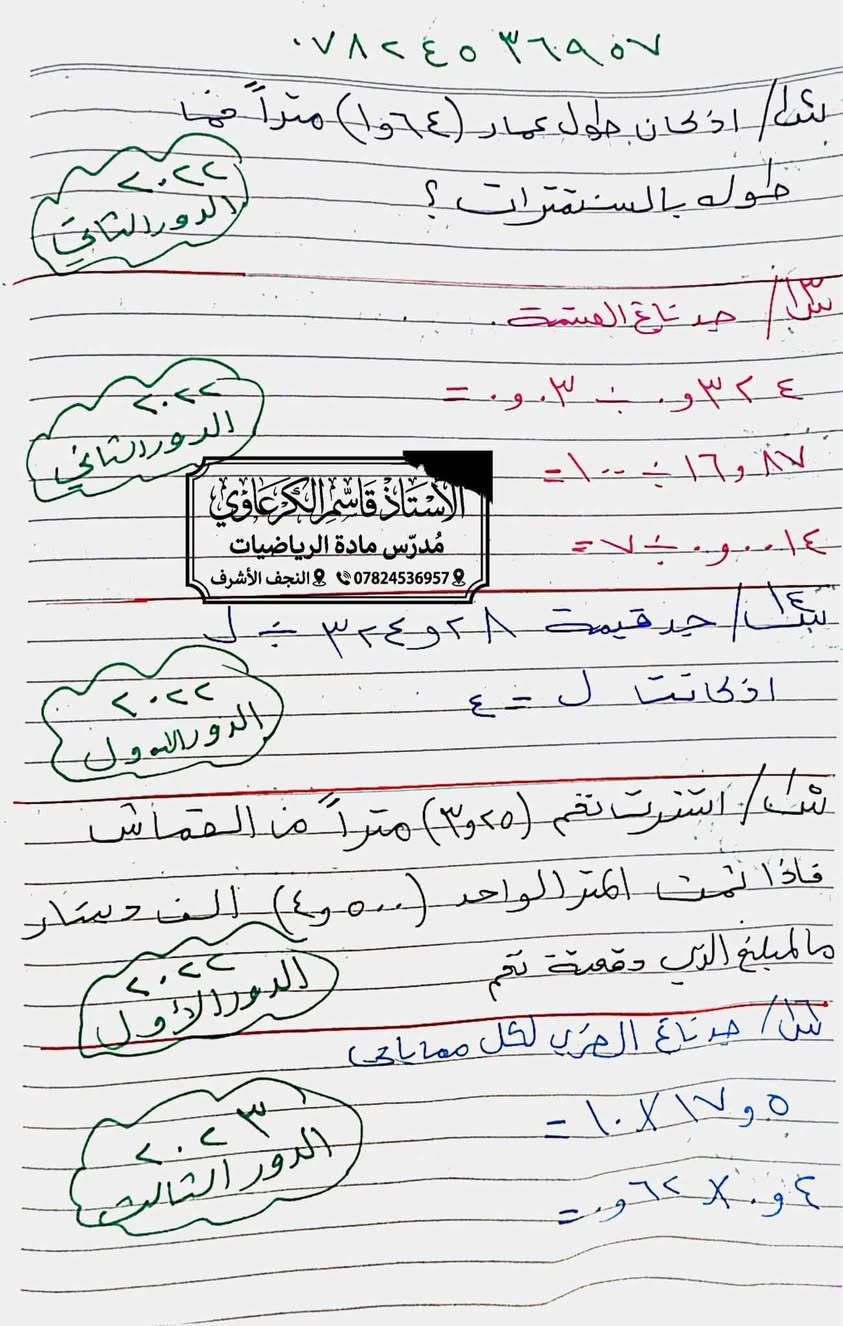 ٠٧٨٢٤٥٣٦٩٥٧
س١٢/ اذ كان طول عمار (٦٤و١) متراً فما
طوله بالسنتمترات ؟
٢٠٢٢
الدور الثاني
س١٣/ جد ناتج القسمة.
٣٢٤و٠ ÷ ٠٣و٠ =
٨٧و١٦ ÷ ١٠٠=
٠٠١٤و٠ ÷ ٧=
٢٠٢٢
الدور الثاني
الأستاذ قاسم الكرعاوي
مُدرّس مادة الرياضيات
07824536957 النجف الأشرف
س١٤/ جد قيمة ٢٨و٣٢٤ ÷ ل
اذ كانت ل = ٤
٢٠٢٢
الدور الاول
س١٥/ اشترت نغم (٢٥و٣) متراً من القماش
فاذا ثمن المتر الواحد (٥٠٠و٤) الف دينار
مالمبلغ الذي دفعته نغم
٢٠٢٢
الدور الأول
س١٦/ جد ناتج الضرب لكل مماياتي
٥و١٧ X ١٠ =
٤و٠ X ٦٢و٠ =
٢٠٢٣
الدور الثالث